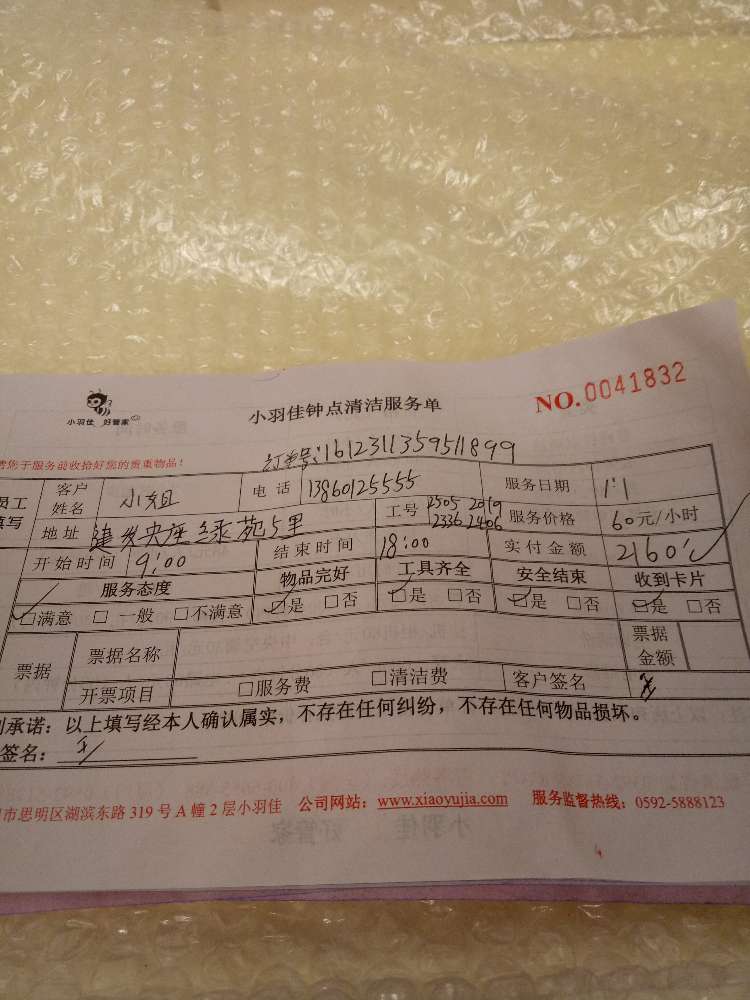 小羽佳 好管家
小羽佳钟点清洁服务单
NO.0041832
您于服务前收拾好您的贵重物品!
订单号:1612311359511899
员工填写 客户姓名 小姐 电话 13860125555 服务日期 1.1
地址 建发央座绿苑5里 工号 2505 2019 2336 2406 服务价格 60元/小时
开始时间 9:00 结束时间 18:00 实付金额 2160
服务态度 物品完好 工具齐全 安全结束 收到卡片
□满意 □一般 □不满意 □是 □否 □是 □否 □是 □否 □是 □否
票据 票据名称 票据金额
开票项目 □服务费 □清洁费 客户签名
承诺:以上填写经本人确认属实,不存在任何纠纷,不存在任何物品损坏。
签名:
市思明区湖滨东路 319 号 A 幢 2 层小羽佳 公司网站:www.xiaoyujia.com 服务监督热线:0592-5888123